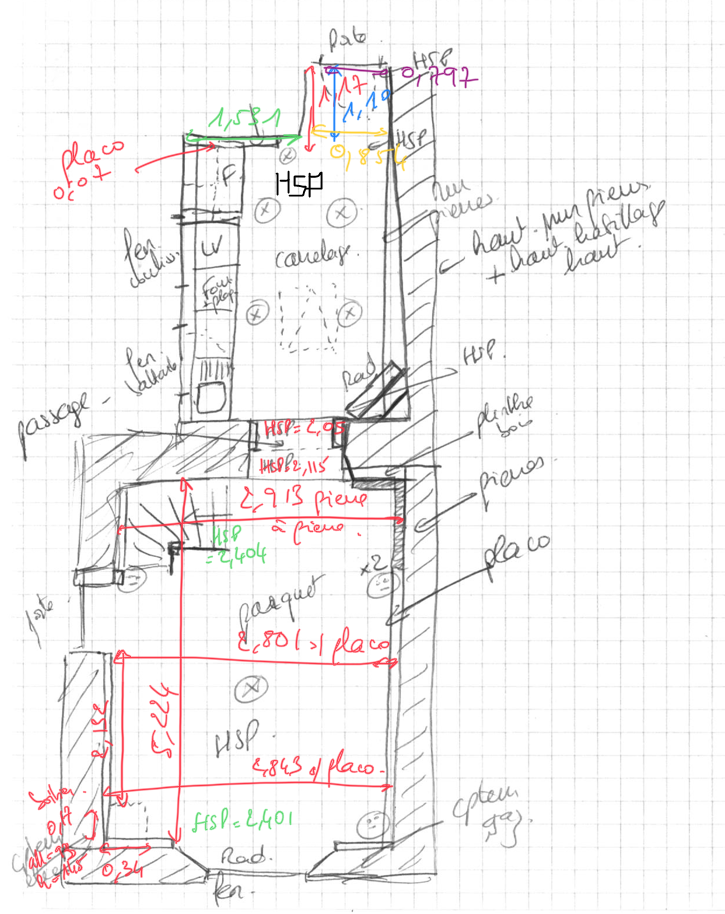 Porte.
HSP
0,797
1,17
1,10
1,531
HSP
0,854
placo
0,07
F
HSP
mur
pierres
haut. mur pierres
+ haut habillage
haut.
LV
carrelage.
Four
+ plaq
Rad
HSP.
passage
HSP = 2,05
HSP = 2,115
plinthe
bois
pierres.
2,913 pierre
à pierre.
HSP
= 2,404
x2
placo
porte
parquet
2,801 s/ placo
2,132
5,224
HSP.
2,843 s/ placo.
HSP = 2,401
0,34
Rad.
fen.